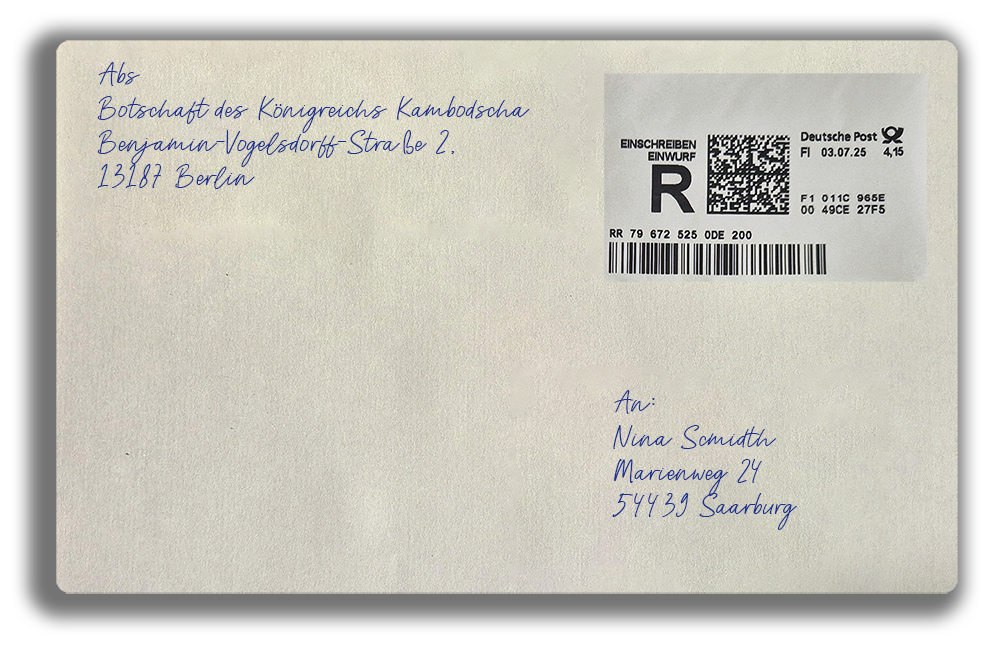 Abs
Botschaft des Königreichs Kambodscha
Benjamin-Vogelsdorff-Straße 2.
13187 Berlin
EINSCHREIBEN
EINWURF
R
Deutsche Post
FI 03.07.25 4,15
F1 011C 965E
00 49CE 27F5
RR 79 672 525 0DE 200
An:
Nina Scmidth
Marienweg 24
54439 Saarburg